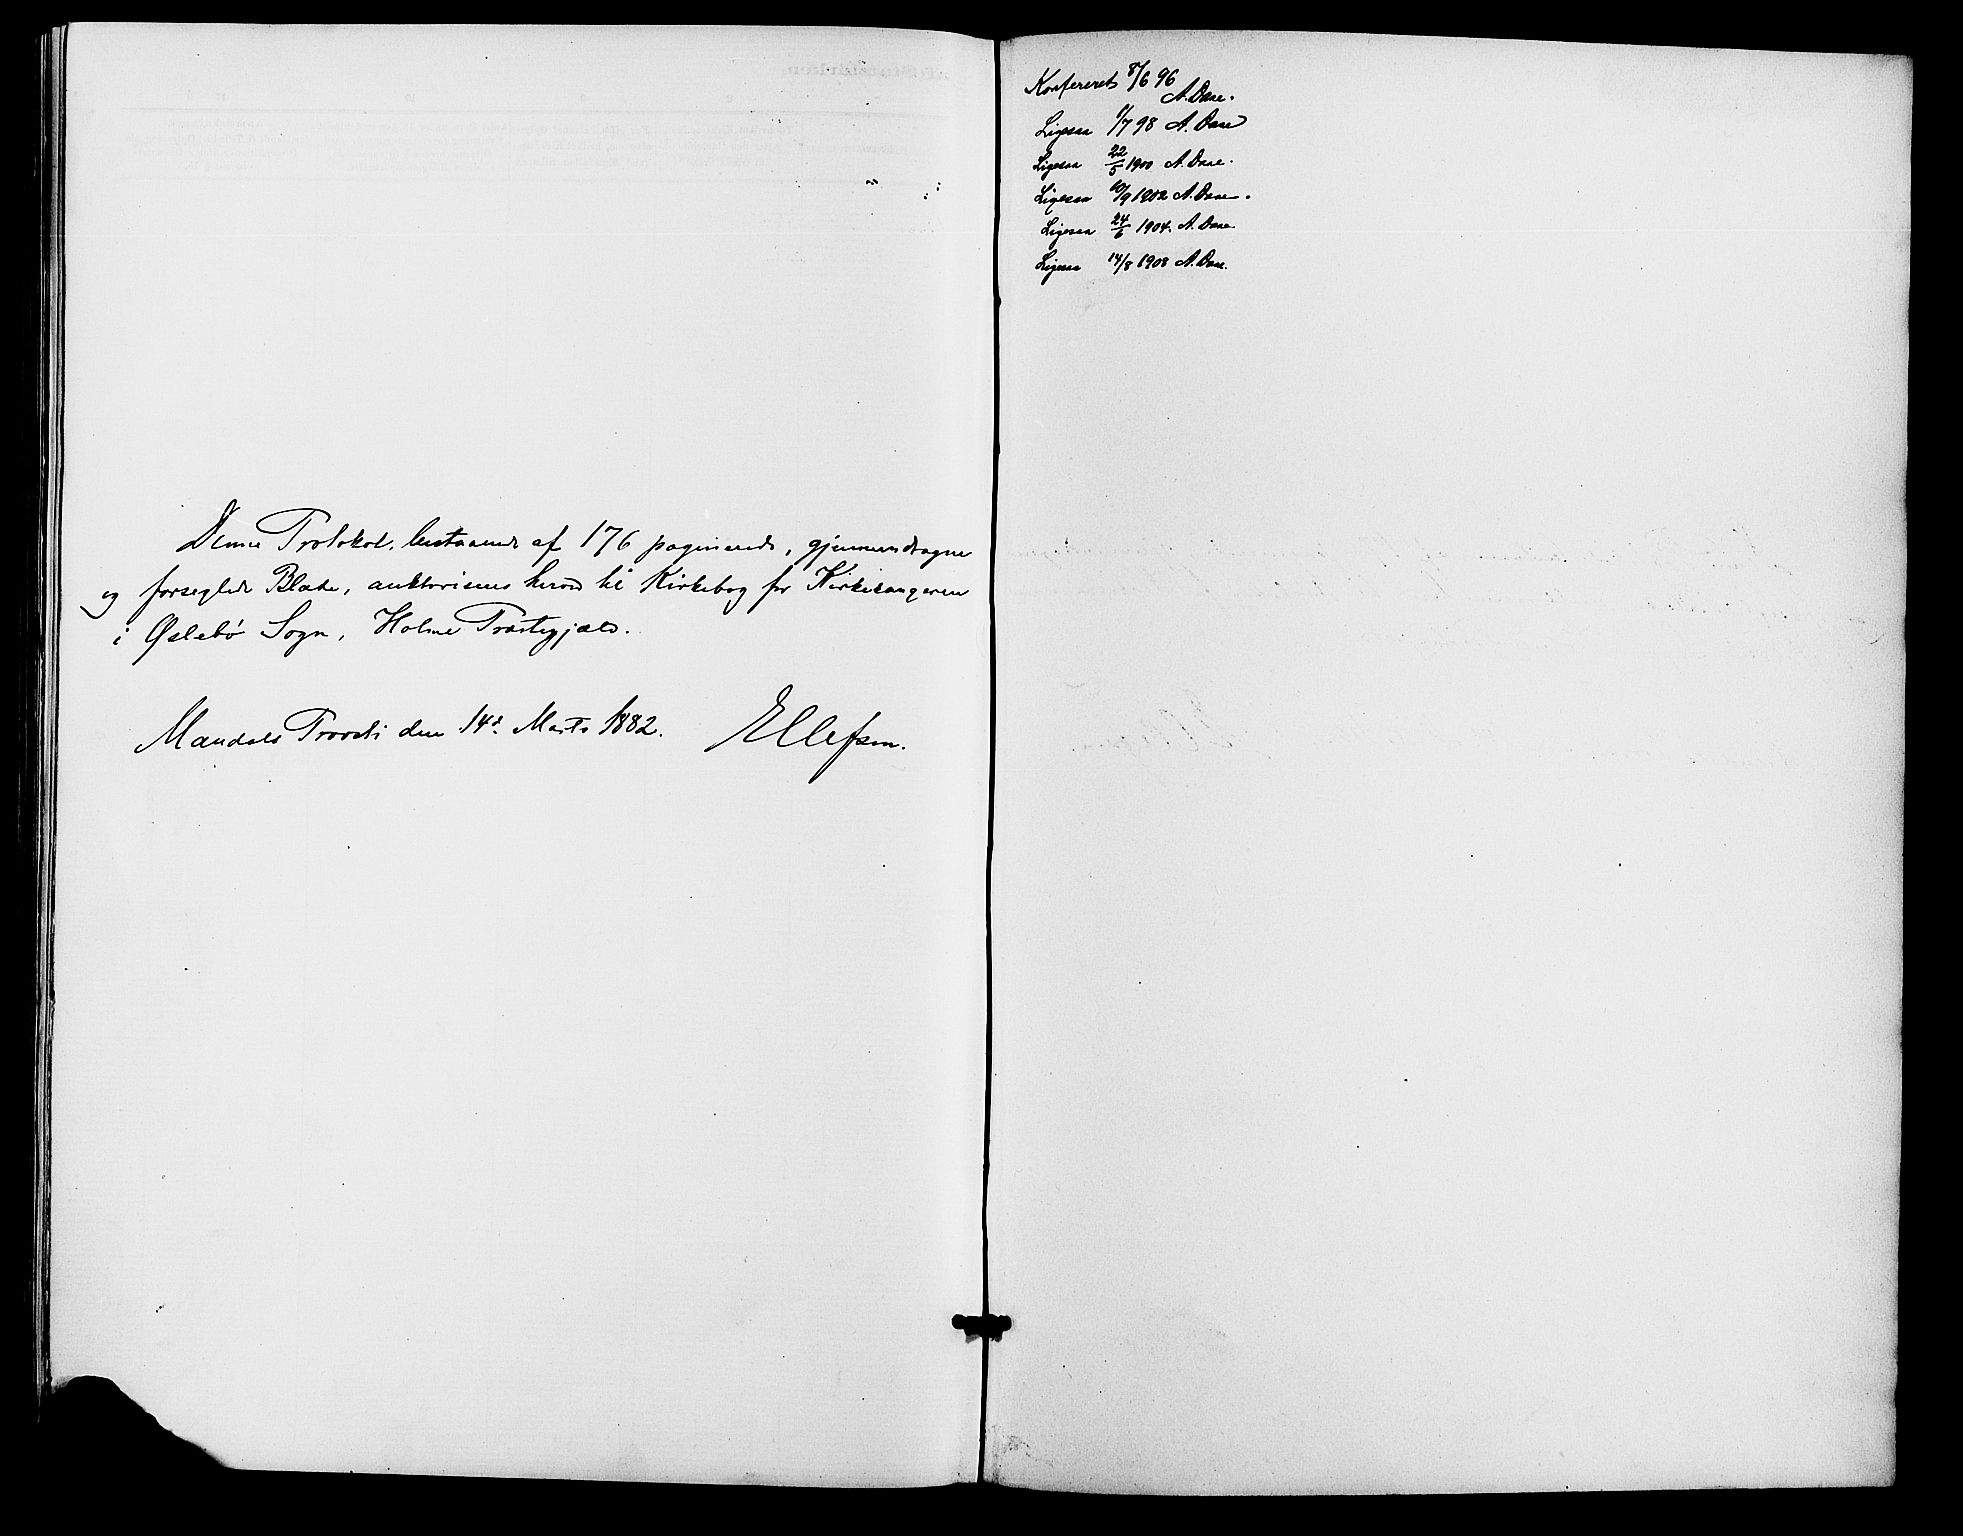 Denne Protokol, bestaaende af 176 paginerede, gjennemdragne
og forseglede Blade, auktoriseres herved til Kirkebog for Kirkesangeren
i Øslebø Sogn, Holme Præstegjæld.
Mandals Provsti den 14de Marts 1882. Ellefsen.
Konfereret 8/6 96
A. Daae.
Ligesaa 1/7 98 A. Daae
Ligesaa 22/5 1900 A. Daae.
Ligesaa 10/9 1902 A. Daae.
Ligesaa 24/6 1904. A. Daae
Ligesaa 14/8 1908 A. Daae.